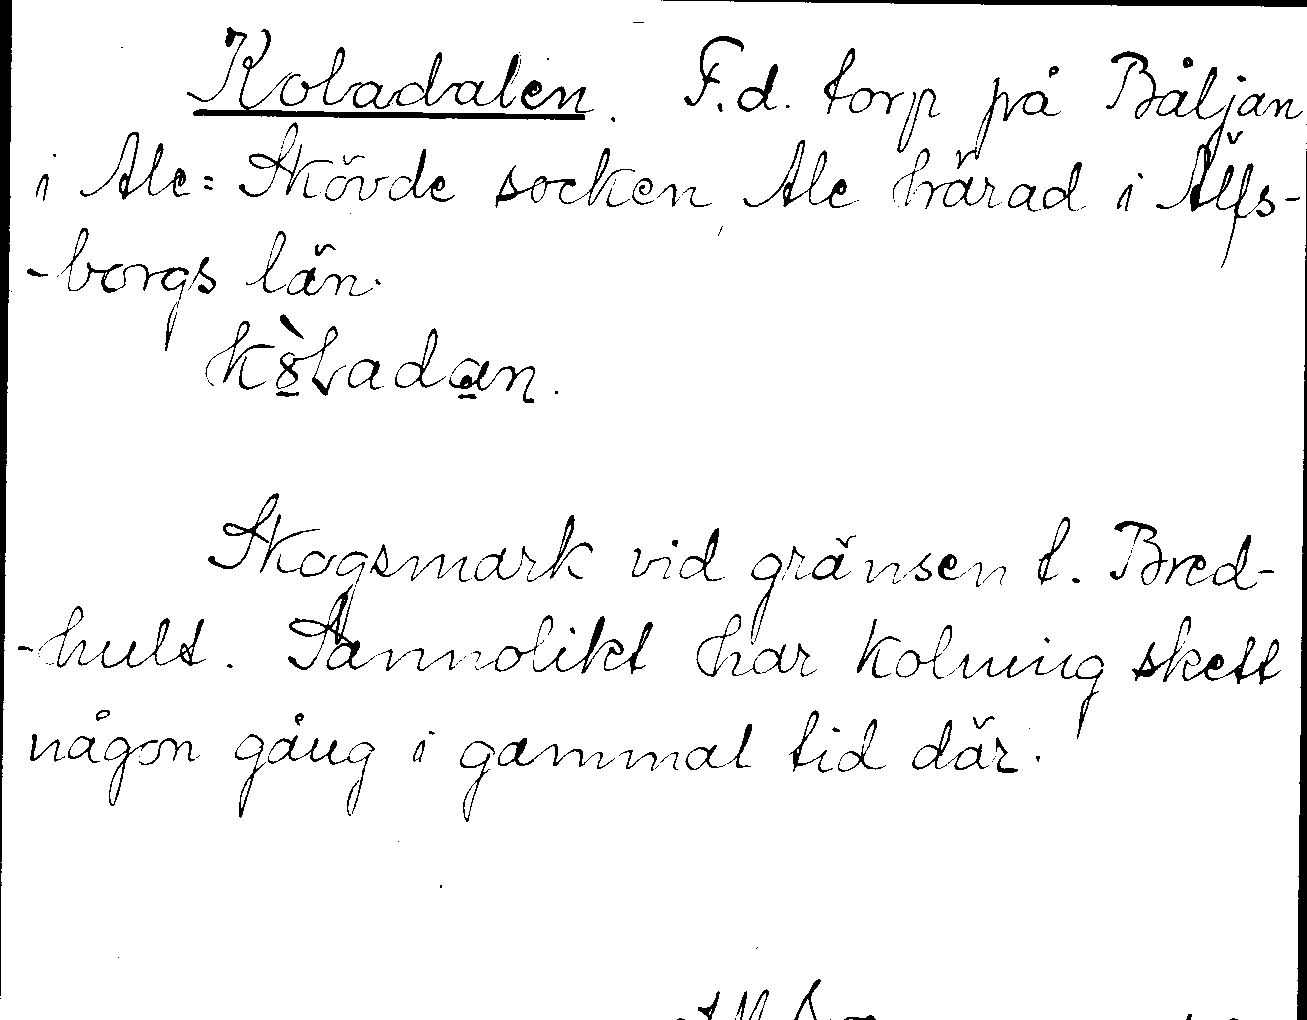 Koladalen. F.d. torp på Båljan
i Ale=Skövde socken, Ale härad i Älfs-
-borgs län.
Skogsmark vid gränsen t. Bred-
-hult. Sannolikt har kolning skett
någon gång i gammal tid där.